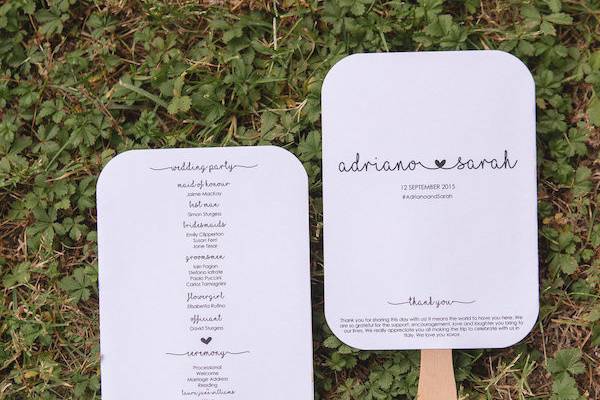 wedding party
maid of honour
Jaime MacKay
best man
Simon Sturgess
bridesmaids
Emily Clipperton
Susan Ferri
Jane Tesar
groomsmen
Iain Fagan
Stefano Iafrate
Paolo Puccini
Carlos Tamagnini
flowergirl
Elisabetta Rufino
officiant
David Sturgess
ceremony
Processional
Welcome
Marriage Address
Reading
adriano sarah
12 SEPTEMBER 2015
#AdrianoandSarah
thank you
Thank you for sharing this day with us it means the world to have you here. We
are so grateful for the support, encouragement, love and laughter you bring to
our lives. We really appreciate you all making the trip to celebrate with us in
Italy. We love you xoxox